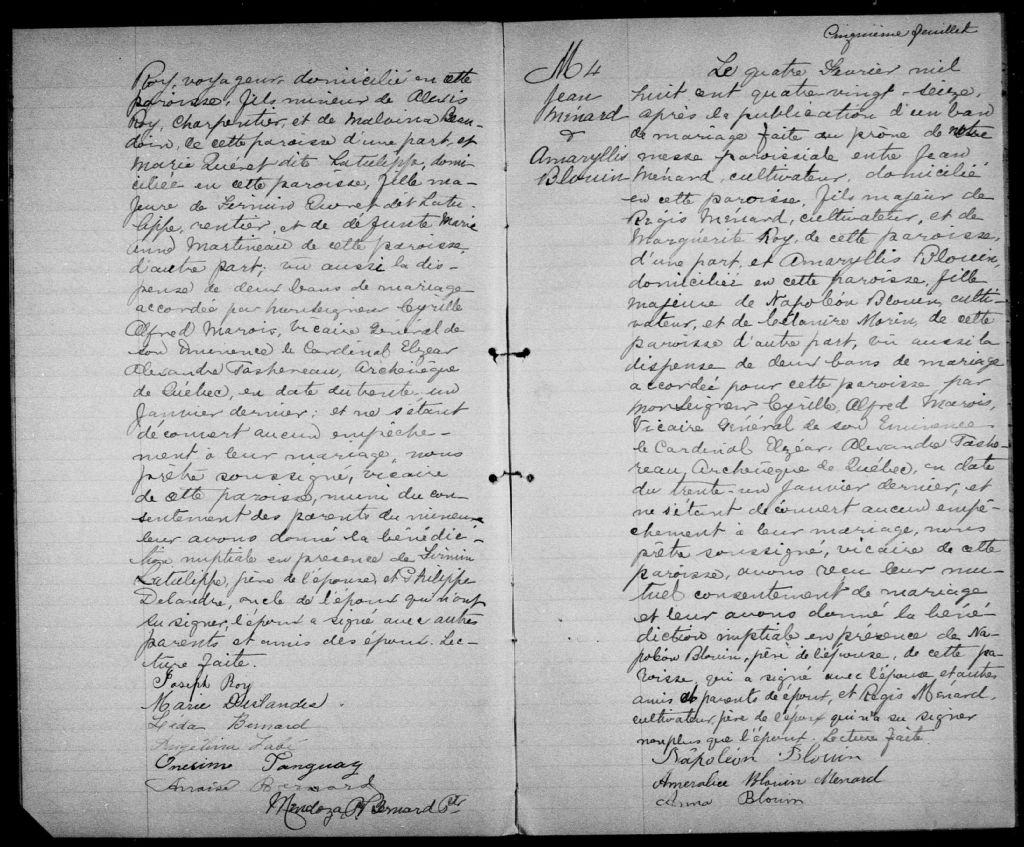 Roy, voyageur, domicilié en cette
paroisse, fils mineur de Alexis
Roy, charpentier, et de Malvina Beau-
doin, de cette paroisse d'une part, et
Marie Quéret dit Latulippe, domi-
ciliée en cette paroisse, fille ma-
jeure de Firmin Quéret dit Latu-
lippe, rentier, et de défunte Marie
Anne Martineau de cette paroisse,
d'autre part; vu aussi la dis-
pense de deux bans de mariage
accordée par Monseigneur Cyrille
Alfred Marois, Vicaire Général de
son Eminence le Cardinal Elzéar
Alexandre Taschereau, Archevêque
de Québec, en date du trente-un
Janvier dernier; et ne s'étant
découvert aucun empêche-
ment à leur mariage, nous
prêtre soussigné, vicaire
de cette paroisse, muni du con-
sentement des parents du mineur
leur avons donné la bénédic-
tion nuptiale en présence de Firmin
Latulippe, père de l'épouse, et Philippe
Delandre, oncle de l'époux qui n'ont
su signer, l'époux a signé avec autres
parents et amis des époux. Lec-
ture faite.
Joseph Roy
Marie Deslandes
Léda Bernard
Angelina Labé
Onesime Tanguay
Bernard
Mendoza P. Bernard Ptr
Cinquième feuillet
M 4
Jean
Ménard
&
Amaryllis
Blouin
Le quatre Fevrier mil
huit cent quatre-vingt-seize,
après la publication d'un ban
de mariage faite au prône de notre
messe paroissiale entre Jean
Ménard, cultivateur, domicilié
en cette paroisse, fils majeur de
Régis Ménard, cultivateur, et de
Marguerite Roy, de cette paroisse,
d'une part, et Amaryllis Blouin,
domiciliée en cette paroisse, fille
majeure de Napoléon Blouin, culti-
vateur, et de Célanire Morin, de cette
paroisse d'autre part, vu aussi la
dispense de deux bans de mariage
accordée pour cette paroisse par
Monseigneur Cyrille Alfred Marois,
Vicaire Général de son Eminence
le Cardinal Elzéar Alexandre Tasche-
reau, Archevêque de Québec, en date
du trente-un Janvier dernier, et
ne s'étant découvert aucun empê-
chement à leur mariage, nous
prêtre soussigné, vicaire de cette
paroisse, avons reçu leur mu-
tuel consentement de mariage
et leur avons donné la béné-
diction nuptiale en présence de Na-
poléon Blouin, père de l'épouse, de cette pa-
roisse, qui a signé avec l'épouse et autres
amis et parents de époux, et Régis Ménard,
cultivateur, père de l'époux qui n'a su signer
non plus que l'époux. Lecture faite
Napoléon Blouin
Ameralice Blouin Menard
Anna Blouin